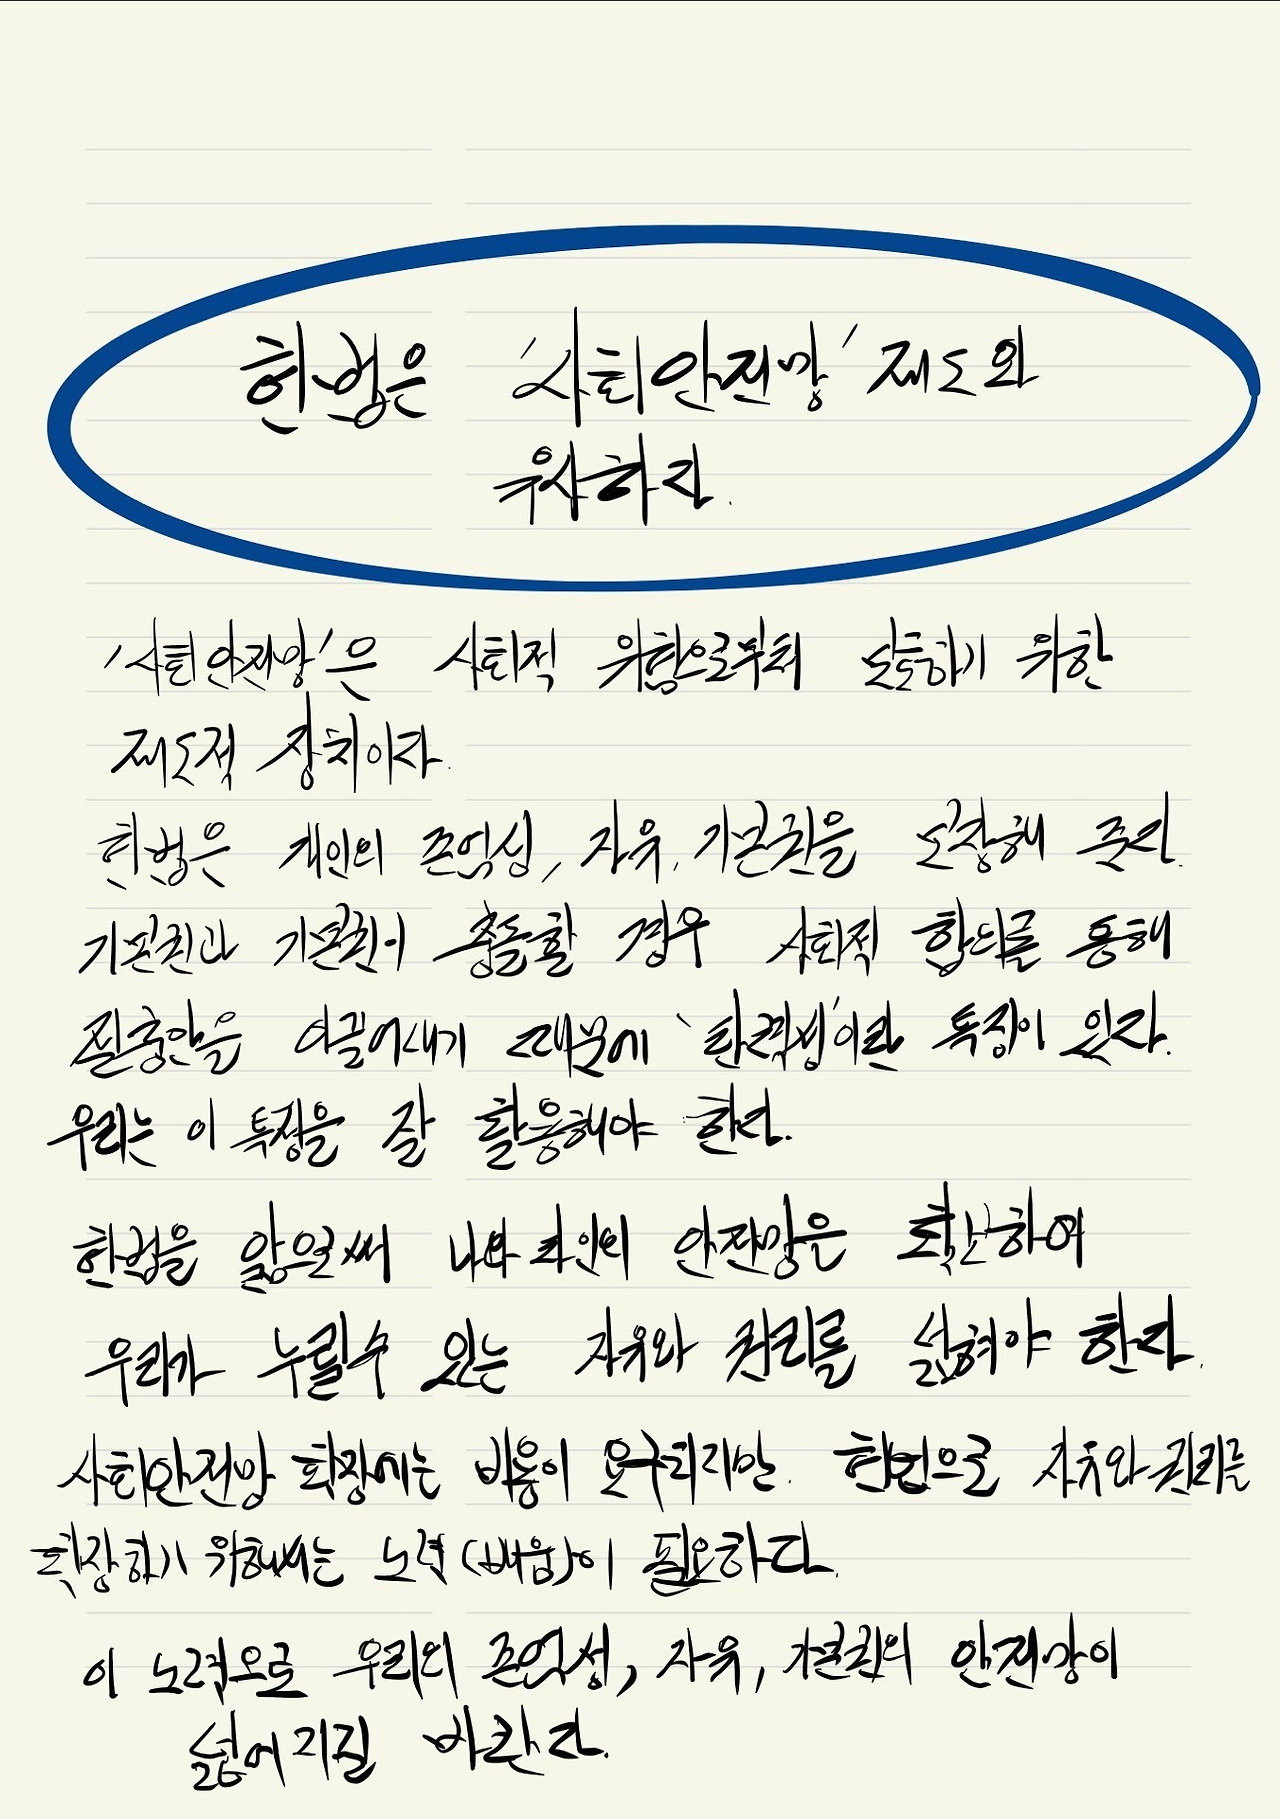 헌법은 '사회안전망' 제도와
유사하다.
'사회안전망'은 사회적 위험으로부터 보호하기 위한
제도적 장치이다.
헌법은 개인의 존엄성, 자유, 기본권을 보장해 준다.
기본권과 기본권이 충돌할 경우 사회적 합의를 통해
절충안을 이끌어내기 때문에 '탄력성'이란 특징이 있다.
우리는 이 특징을 잘 활용해야 한다.
헌법을 앎으로써 나와 타인의 안전망은 확산하여
우리가 누릴 수 있는 자유와 권리를 넓혀야 한다.
사회안전망 확장에는 비용이 요구되지만, 헌법으로 자유와 권리를
확장하기 위해서는 노력(배움)이 필요하다.
이 노력으로 우리의 존엄성, 자유, 기본권의 안전망이
넓어지길 바란다.